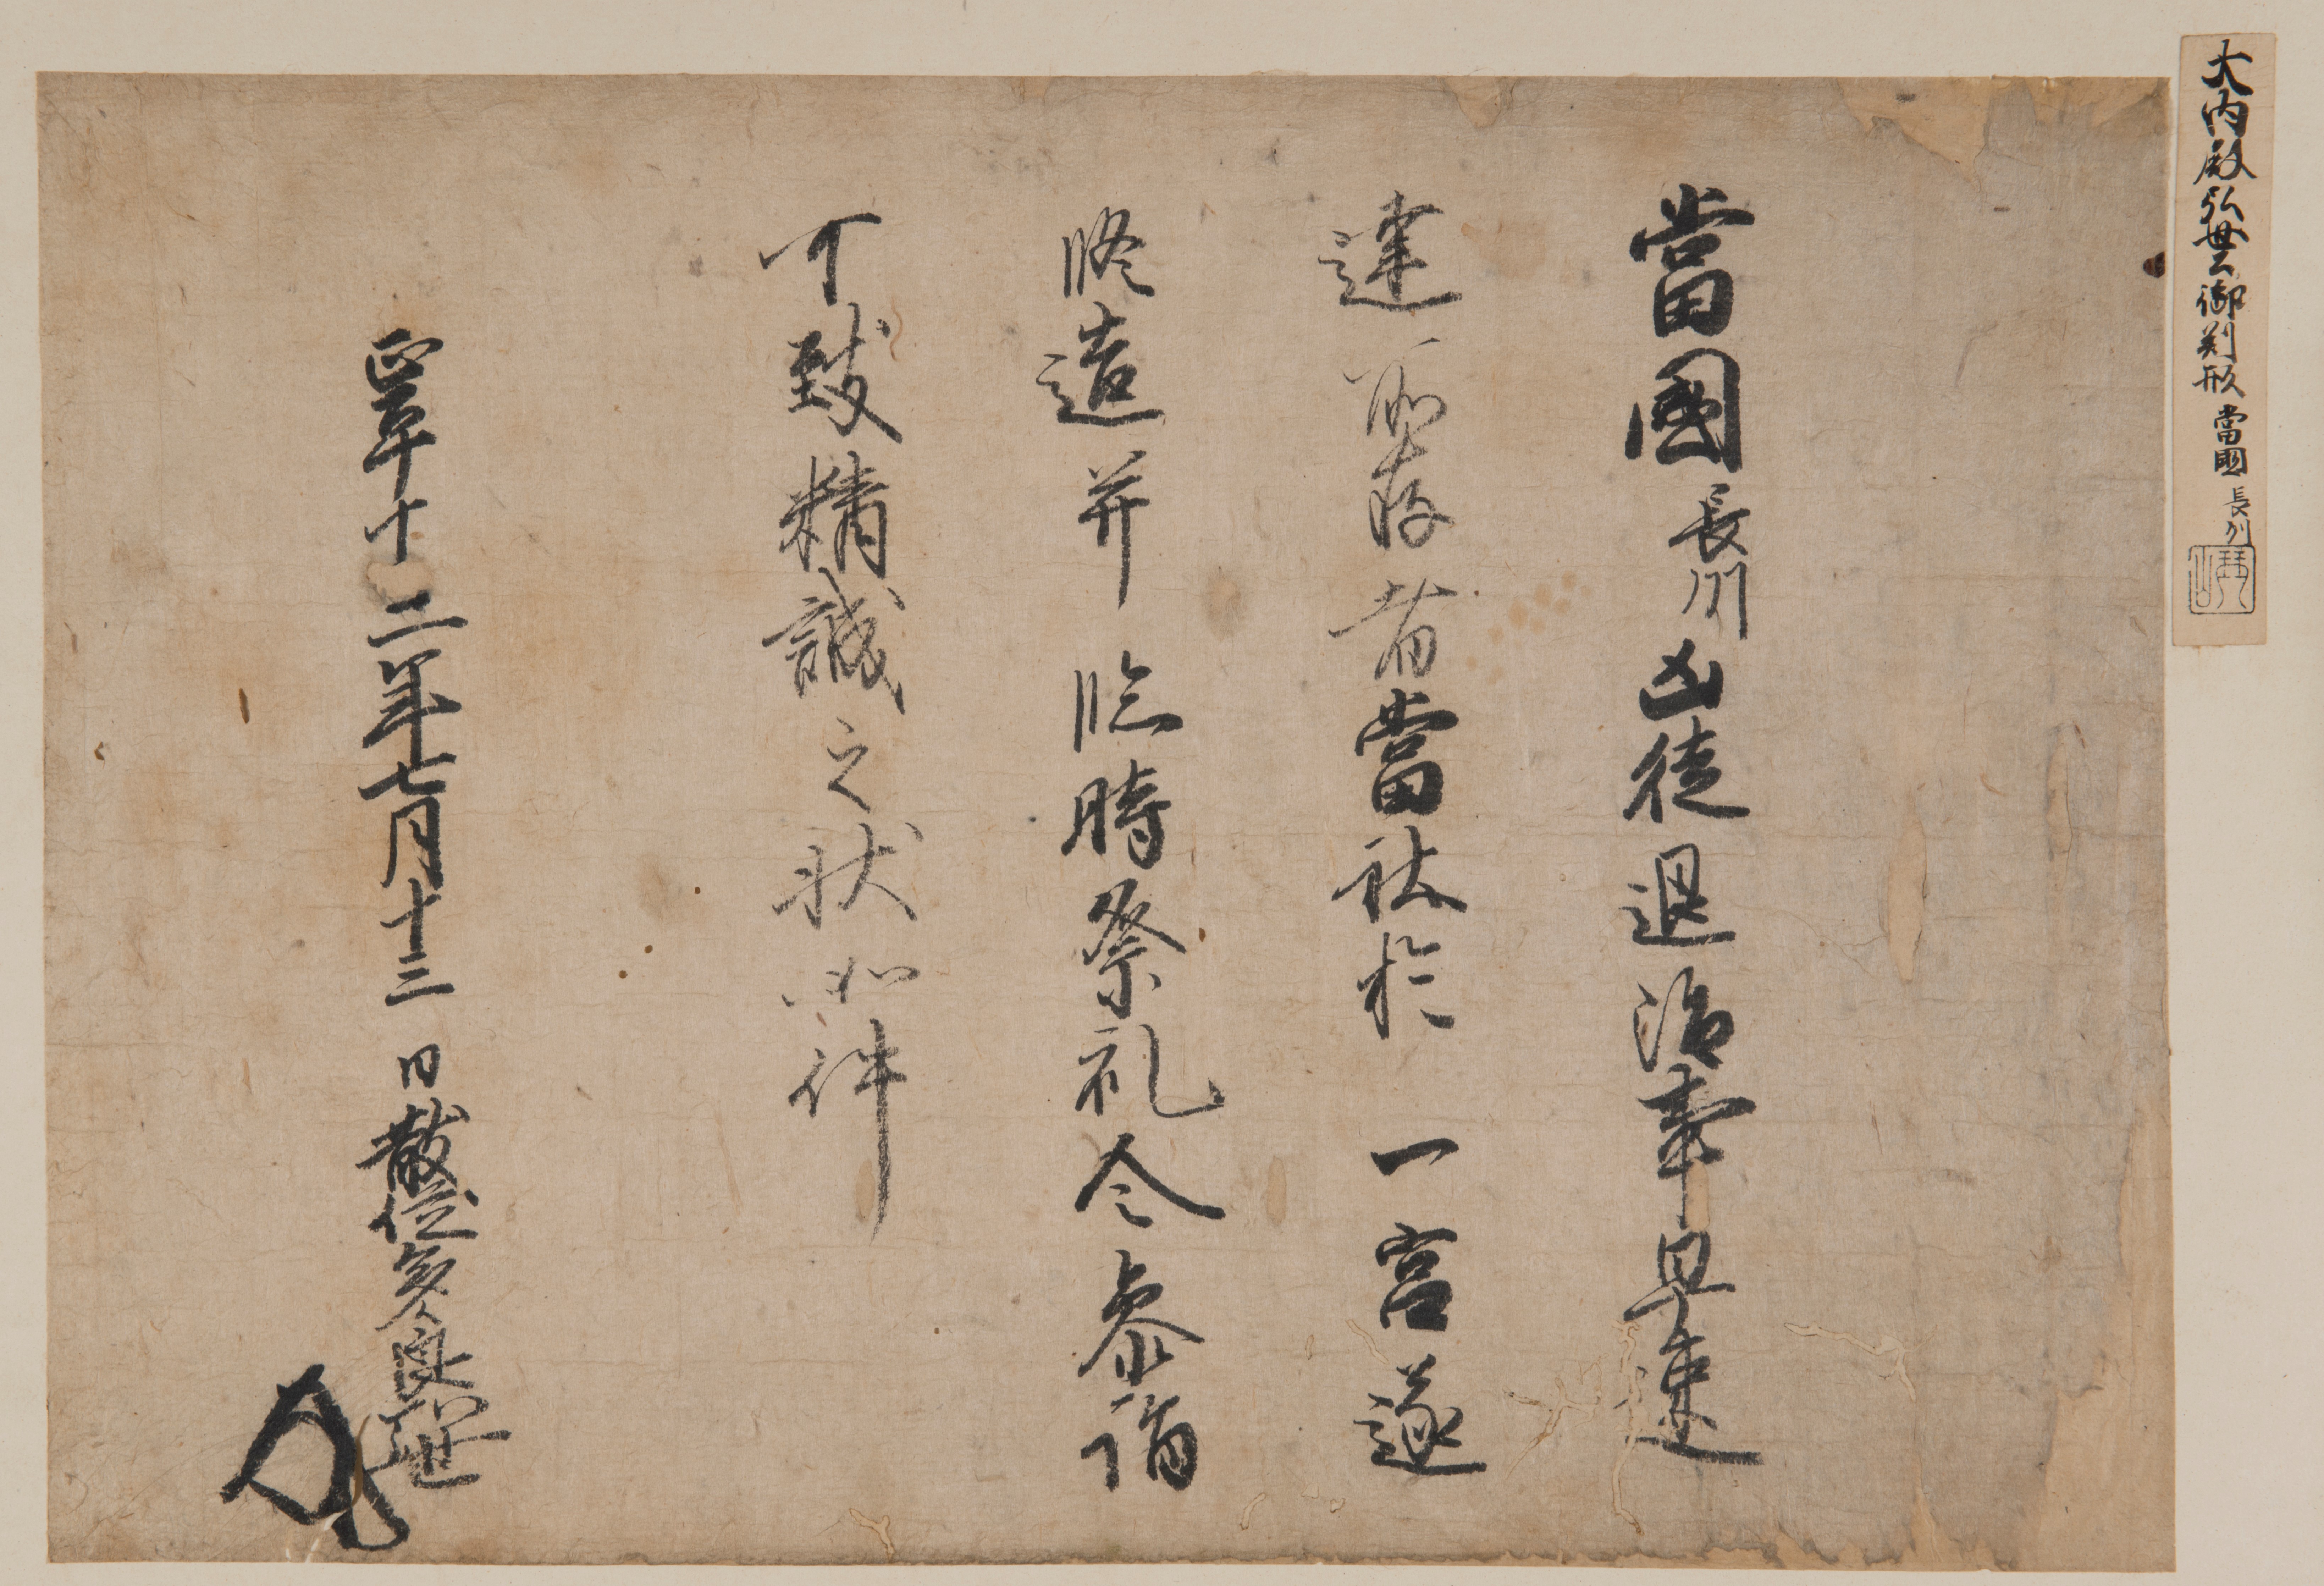 大内殿弘世御判形 當國長州
當國長州凶徒退治事早速
達所存者當社於一宮遂
修造并臨時祭礼令參詣
可致精誠之状如件
正平十二年七月十三日散位多々良弘世